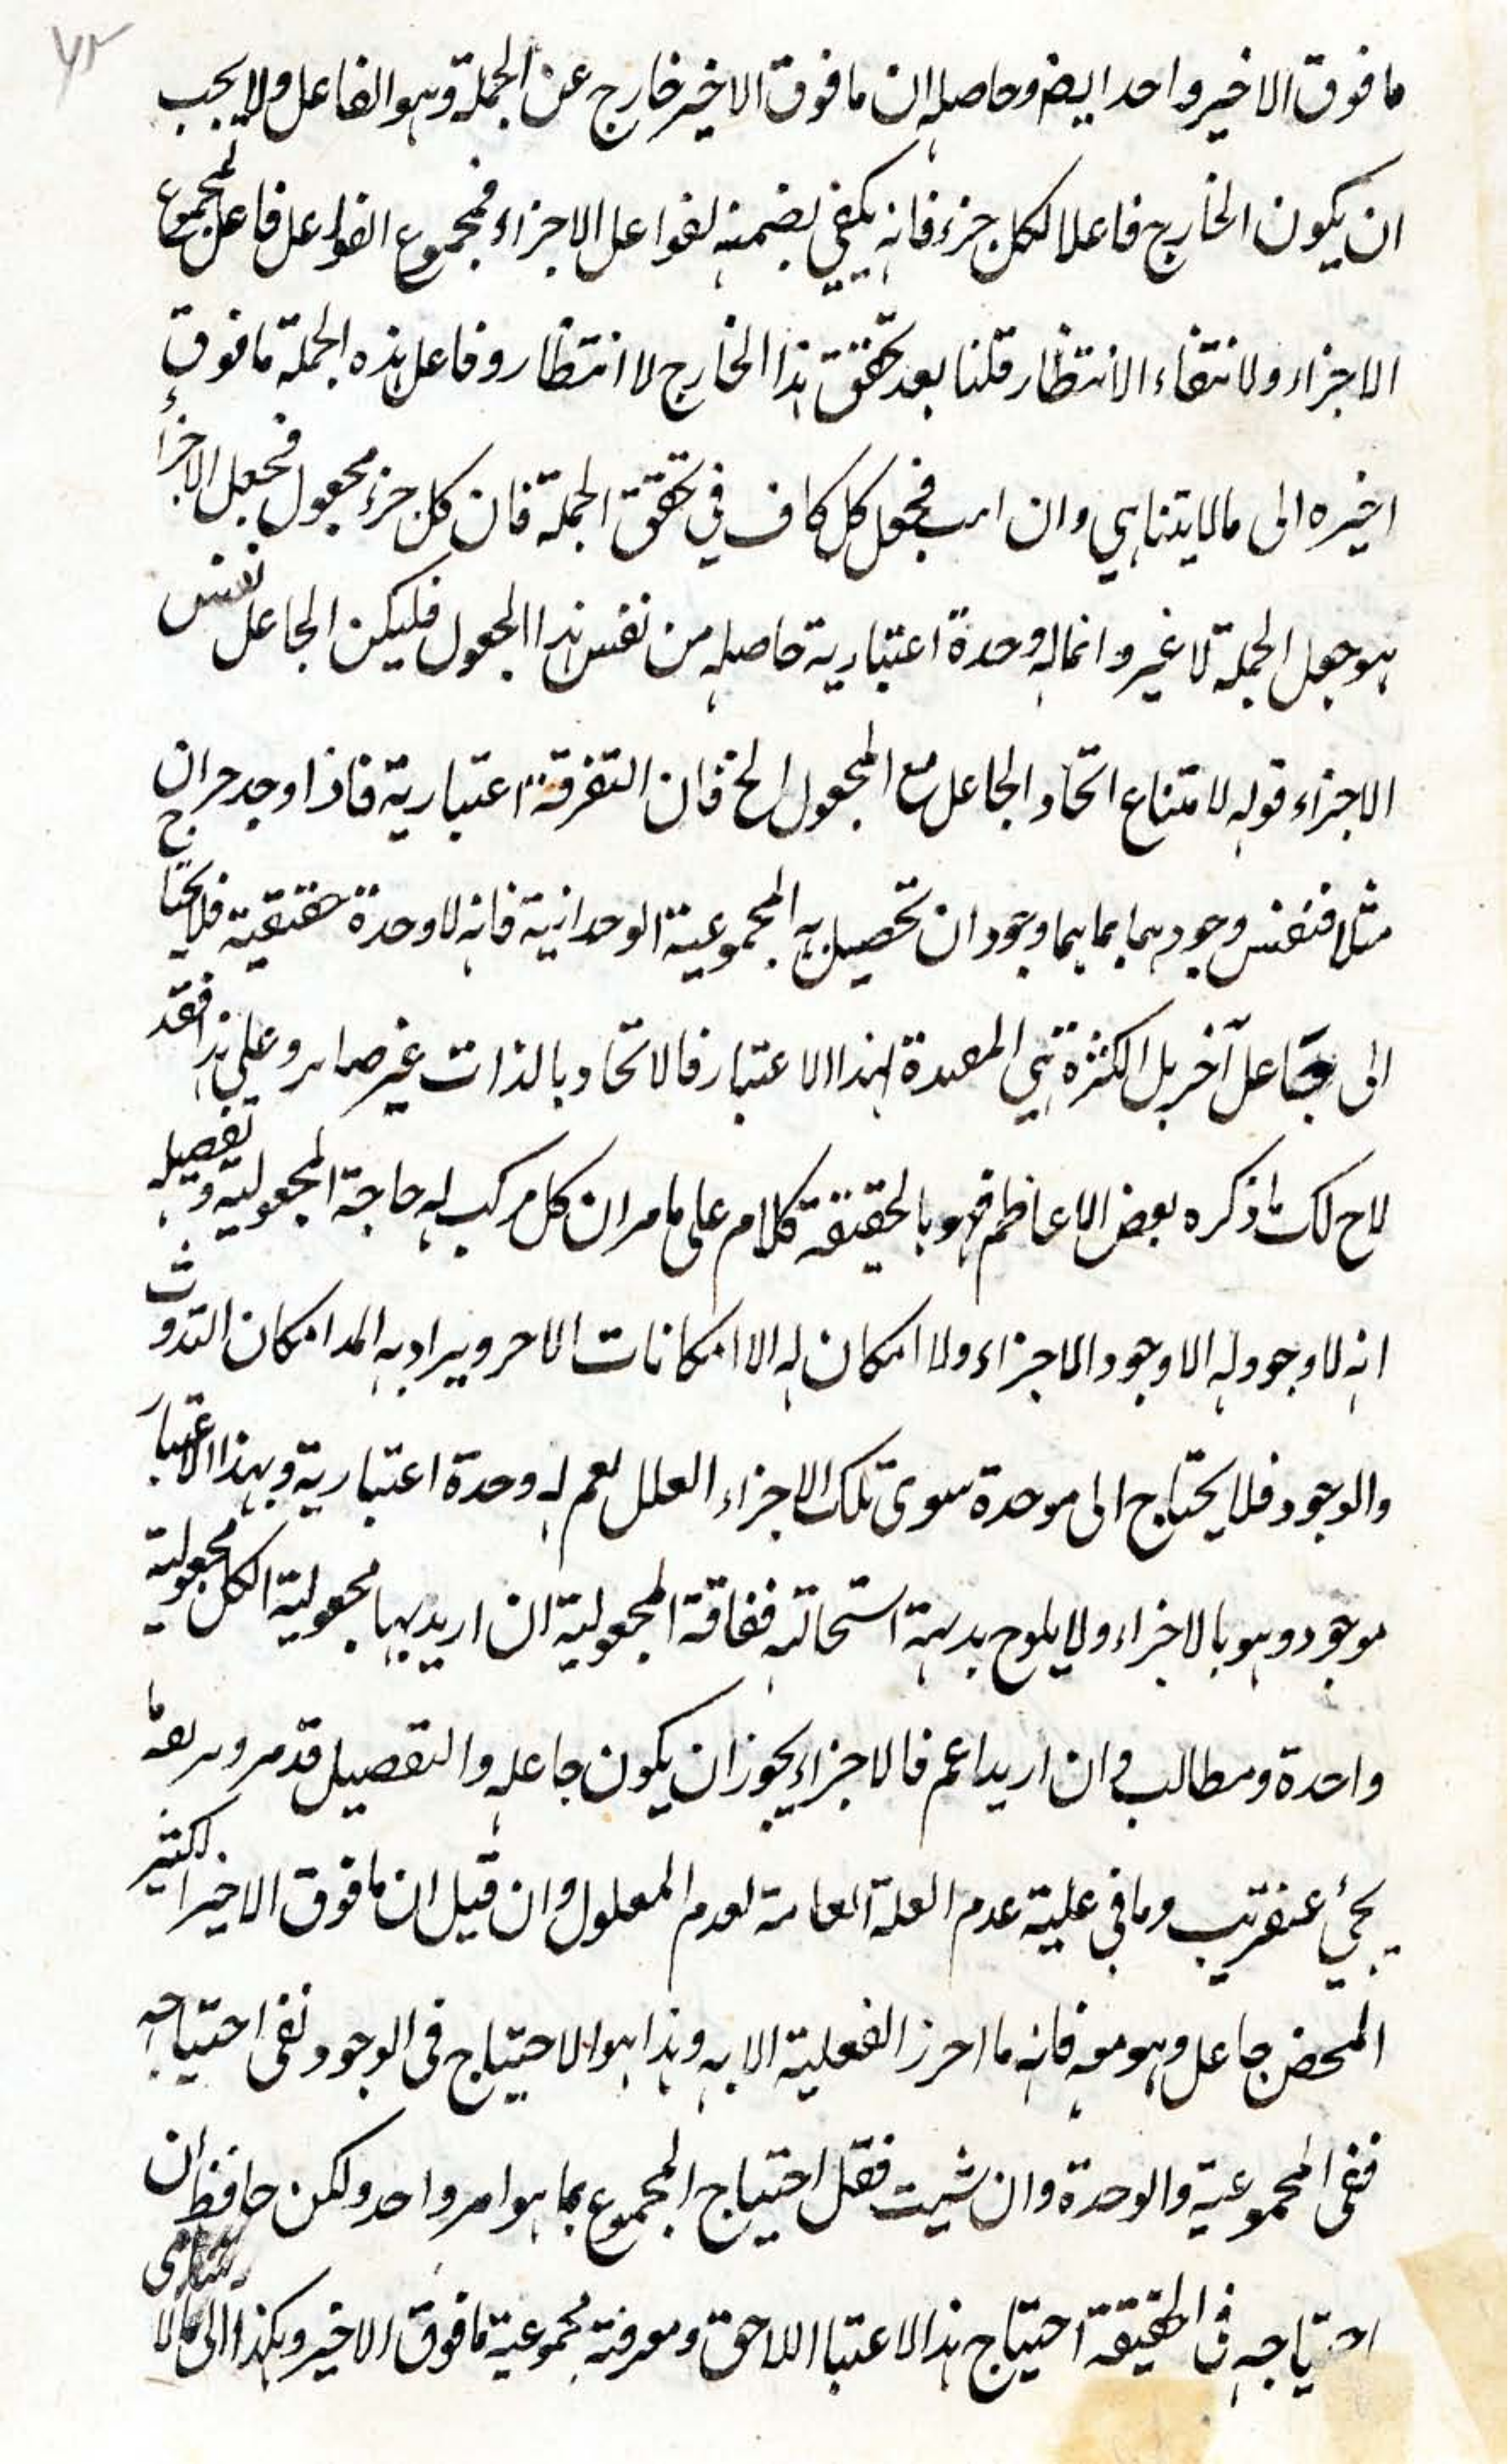 ما فوق الاخير واحد ايضا وحاصله ان ما فوق الاخير خارج عن الجملة وهو الفاعل ولا يجب
ان يكون الخارج فاعلا لكل جزء فانه يكفي تضمنه لفواعل الاجزاء فمجموع الفواعل فاعل لمجموع
الاجزاء ولانتفاء الانتظار قلنا بعد تحقق هذا الخارج لا انتظار وفاعل هذه الجملة ما فوق
اخيره الى ما لا يتناهي وان فجعل كل كاف في تحقق الجملة فان كل جزء مجعول فجعل الاجزاء
هو جعل الجملة لا غير وانما له وحدة اعتبارية حاصله من نفس هذا المجعول فليكن الجاعل نفس
الاجزاء قوله لامتناع اتحاد الجاعل مع المجعول الخ فان التفرقة اعتبارية فاذا وجد جزان
مثلا فنفس وجودهما بما هما وجودان تحصيل به المجموعية الوحدانية فانه لا وحدة حقيقية فلا يحتاج
الى جاعل آخر بل الكثرة هي المعدة لهذا الاعتبار فالاتحاد بالذات غير ضار وعلى هذا فقد
لاح لك ما ذكره بعض الاعاظم فهو بالحقيقة كلام على ما مر ان كل مركب له حاجة المجعولية وتفصيله
انه لا وجود له الا وجود الاجزاء ولا امكان له الا امكانات الاجزاء ويراد به امكان
والوجود فلا يحتاج الى موحدة سوى تلك الاجزاء العلل نعم له وحدة اعتبارية وبهذا الاعتبار
موجود وهو بالاجزاء ولا يلوح بديهة استحالته ففاقة المجعولية ان اريد بها مجعولية الكل مجعولية
واحدة ومطالب وان اريد اعم فالاجزاء يجوز ان يكون جاعله والتفصيل قد مر
يجئ عنقريب وما في علية عدم العلة العامة لعدم المعلول وان قيل ان ما فوق الاخير الكثير
المحض جاعل وهو معه فانه ما احرز الفعلية الا به وهذا هو الاحتياج في الوجود نفى احتياجه
ففى المجموعية والوحدة وان شيت فقل احتياج المجموع بما هو امر واحد ولكن حافظ ان
احتياجه في الحقيقة احتياج هذا الاعتبا اللاحق ومعرفة مجموعية ما فوق الاخير وهكذا الى ما لا